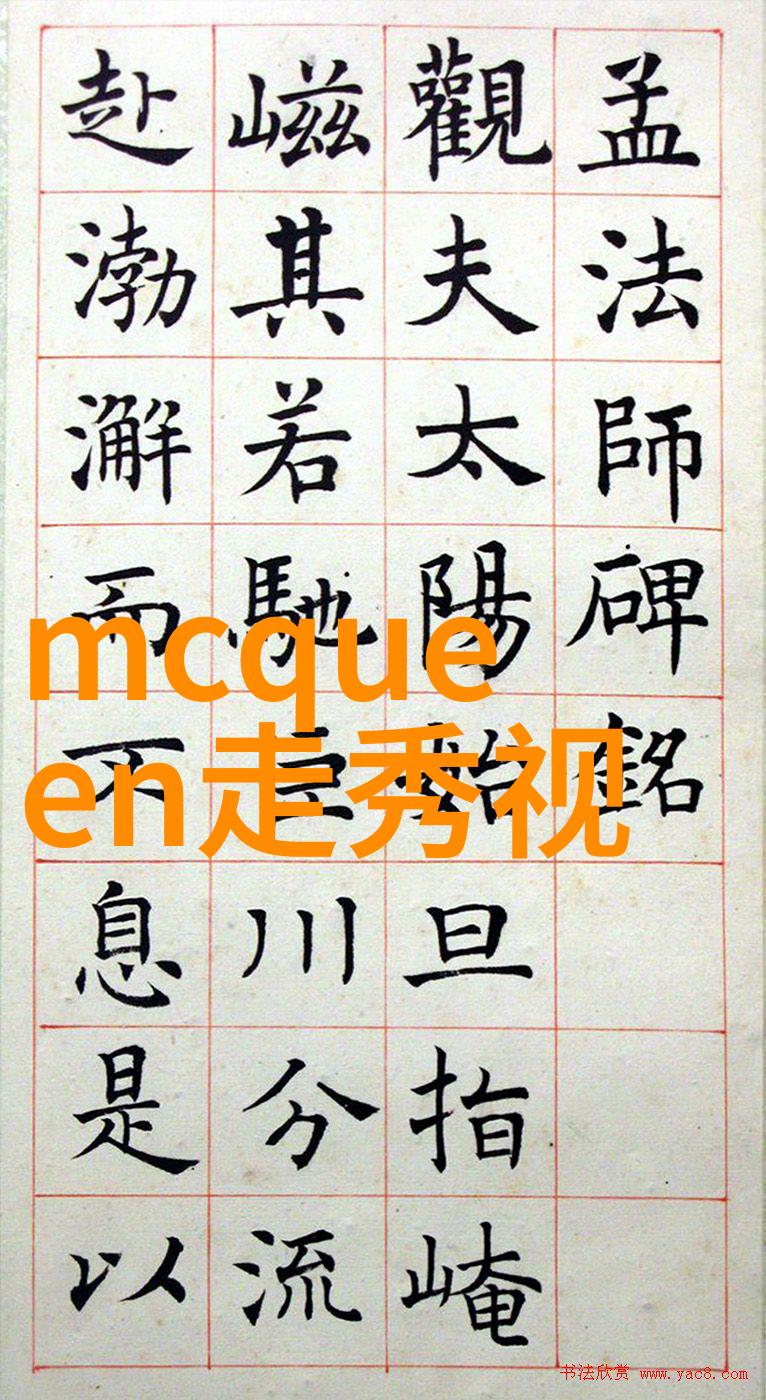 孟法師碑銘
觀夫太陽始旦指崦
嵫其若馳巨川分流
赴渤澥而不息是以
mcque
en走秀视
书法欣赏 www.yac8.com